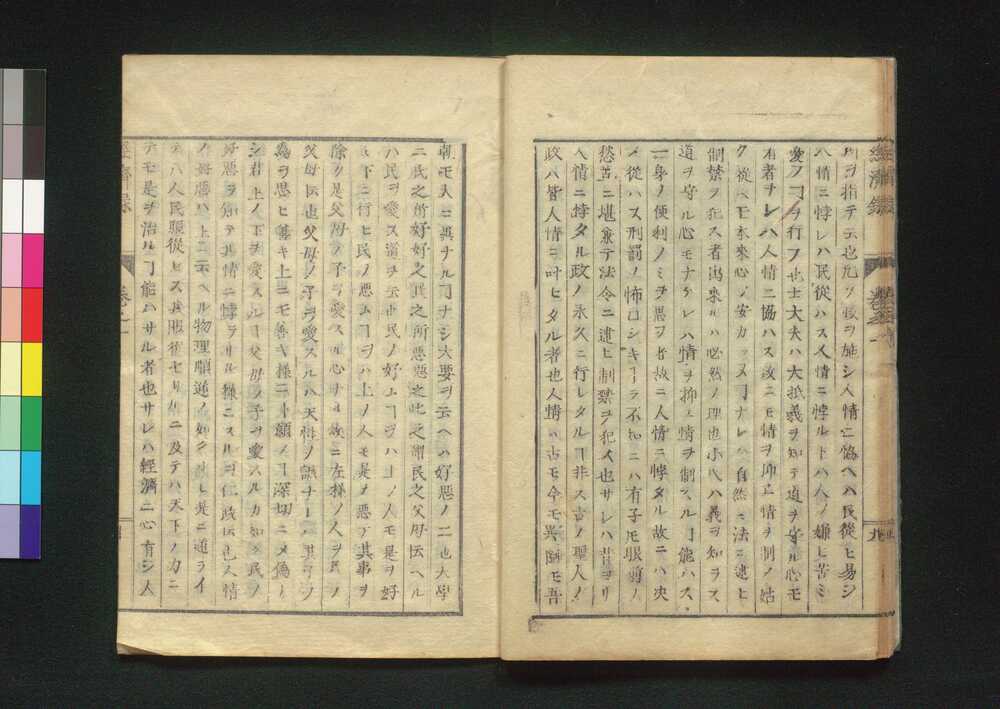 経済録
巻之一
九
所ヲ指テ云也凡ソ政ヲ施シ人情ニ協ヘハ民從ヒ易シ
人情ニ悖レハ民從ハス人情ニ悖ルトハ人ノ嫌ヒ苦ミ
憂フヿヲ行フ也士大夫ハ大抵義ヲ知テ道ヲ守ル心モ
有者ナレハ人情ニ協ハス
クヘモ本來心ノ安カラヌヿナレハ自然ニ法ニ違ヒ
制禁ヲ犯ス者出來ルハ必然ノ理也小民ハ義ヲ知ラス
道ヲ守ル心モナケレハ情ヲ抑ヘ情ヲ制スルヿ能ハス
一身ノ便利ノミヲ思フ者故ニ人情ニ悖タル政ニハ決
メ從ハス刑罰ノ怖ロシキヿヲ不知ニハ有子トモ眼前ノ
愁苦ニ堪兼テ法令ニ違ヒ制禁ヲ犯ス也サレハ昔ヨリ
人情ニ悖タル政ノ永久ニ行レタルヿ非ス古ノ聖人ノ
政ハ皆人情ニ叶ヒタル者也人情ハ古モ今モ異國モ吾
朝モ大ニ異ナルヿナシ大要ヲ云ヘハ好惡ノ二也大學
ニ民之所好好之民之所惡惡之此之謂民之父母云ヘル
ハ民ヲ愛スル道ヲ云也民ノ好ムヿヲハ上ノ人モ是ヲ好
天下ニ行ヒ民ノ惡ムヿヲハ上ノ人モ是ヲ惡テ其事ヲ
除ク是父母ノ子ヲ愛スル心ナル故ニ左樣ノ人ヲ民ノ
父母云也父母ノ子ヲ愛スルハ天性ノ誠ナレハ其子ノ
為ヲ思ヒ善キ上ニモ善キ樣ニト願フヿ深切ニメ偽ナ
シ君上ノ下ヲ愛スルヿ父母ノ子ヲ愛スルカ如ク民ノ
好惡ヲ知テ其情ニ悖ラサル樣ニスルヲ仁政云也人情
ノ好惡ハ上ニ云ヘル物理順逆ノ如ク
ハ人民服從セス其服從セサルニ及テハ天下ノ力ニ
テモ是ヲ治ルヿ能ハサル者也サレハ經濟ニ心有シ人
經濟録
巻之一